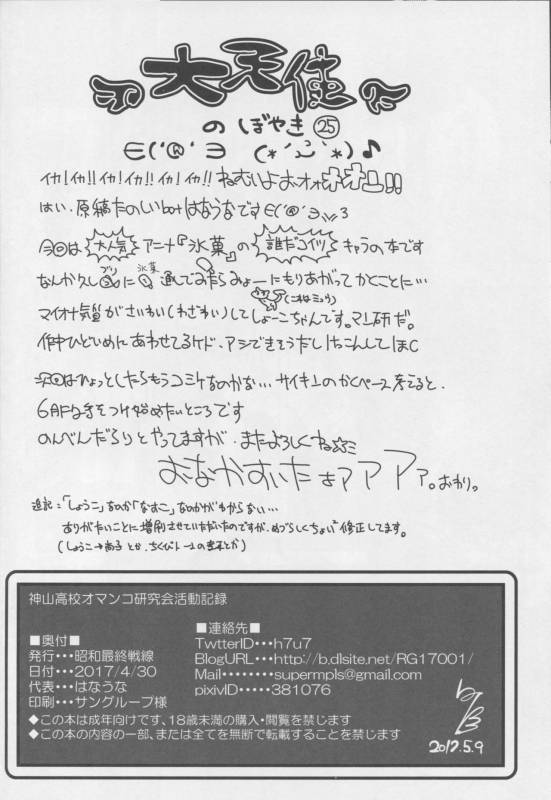 大天使
の ぼやき ㉕
∈('®'∋ (*´ω`*)♪
イカ!イカ!!イカ!イカ!イカ!イカ!! ねむいよおオォオオ!!
はい、原稿たのしいbotはなうなです∈('®'∋ 3
今回は 大人気 アニナ『氷菓』の 誰だコイツ キャラの本です
なんか久しぶりに 氷菓 通してみたらみょーにもりあがってかくことに…
(これはミョウ)
マイナ気質がさいわい(わざわい)してしょーこちゃんです。マン研だ。
作中ひどいめにあわせてるケド、アシできそうだし けっこんしてほC
次回はひょっとしたらもうコミケなのかな… サイキンのかくペース考えると、
6月 手をつけ始めたいところです
のんべんだらりとやってますが、またよろしくね☆ミ
おなかすいたよアアアァ。おわり。
追記:「しょうこ」なのか「なおこ」なのかがわからない…
ありがたいことに増刷させていただいたのですが、めづらしくちょい²修正してます。
(しょうこ→尚子 とか、ちくびトーンの とか)
神山高校オマンコ研究会活動記録
■奥付■
発行・・・昭和最終戦線
日付・・・2017/4/30
代表・・・はなうな
印刷・・・サングループ様
■連絡先■
TwtterID・・・h7u7
BlogURL・・・http://b.dlsite.net/RG17001/
Mail・・・・・・・・supermpls@gmail.com
pixivID・・・・・381076
◆この本は成年向けです、18歳未満の購入・閲覧を禁じます
◆この本の内容の一部、または全てを無断で転載することを禁じます
2017.5.9